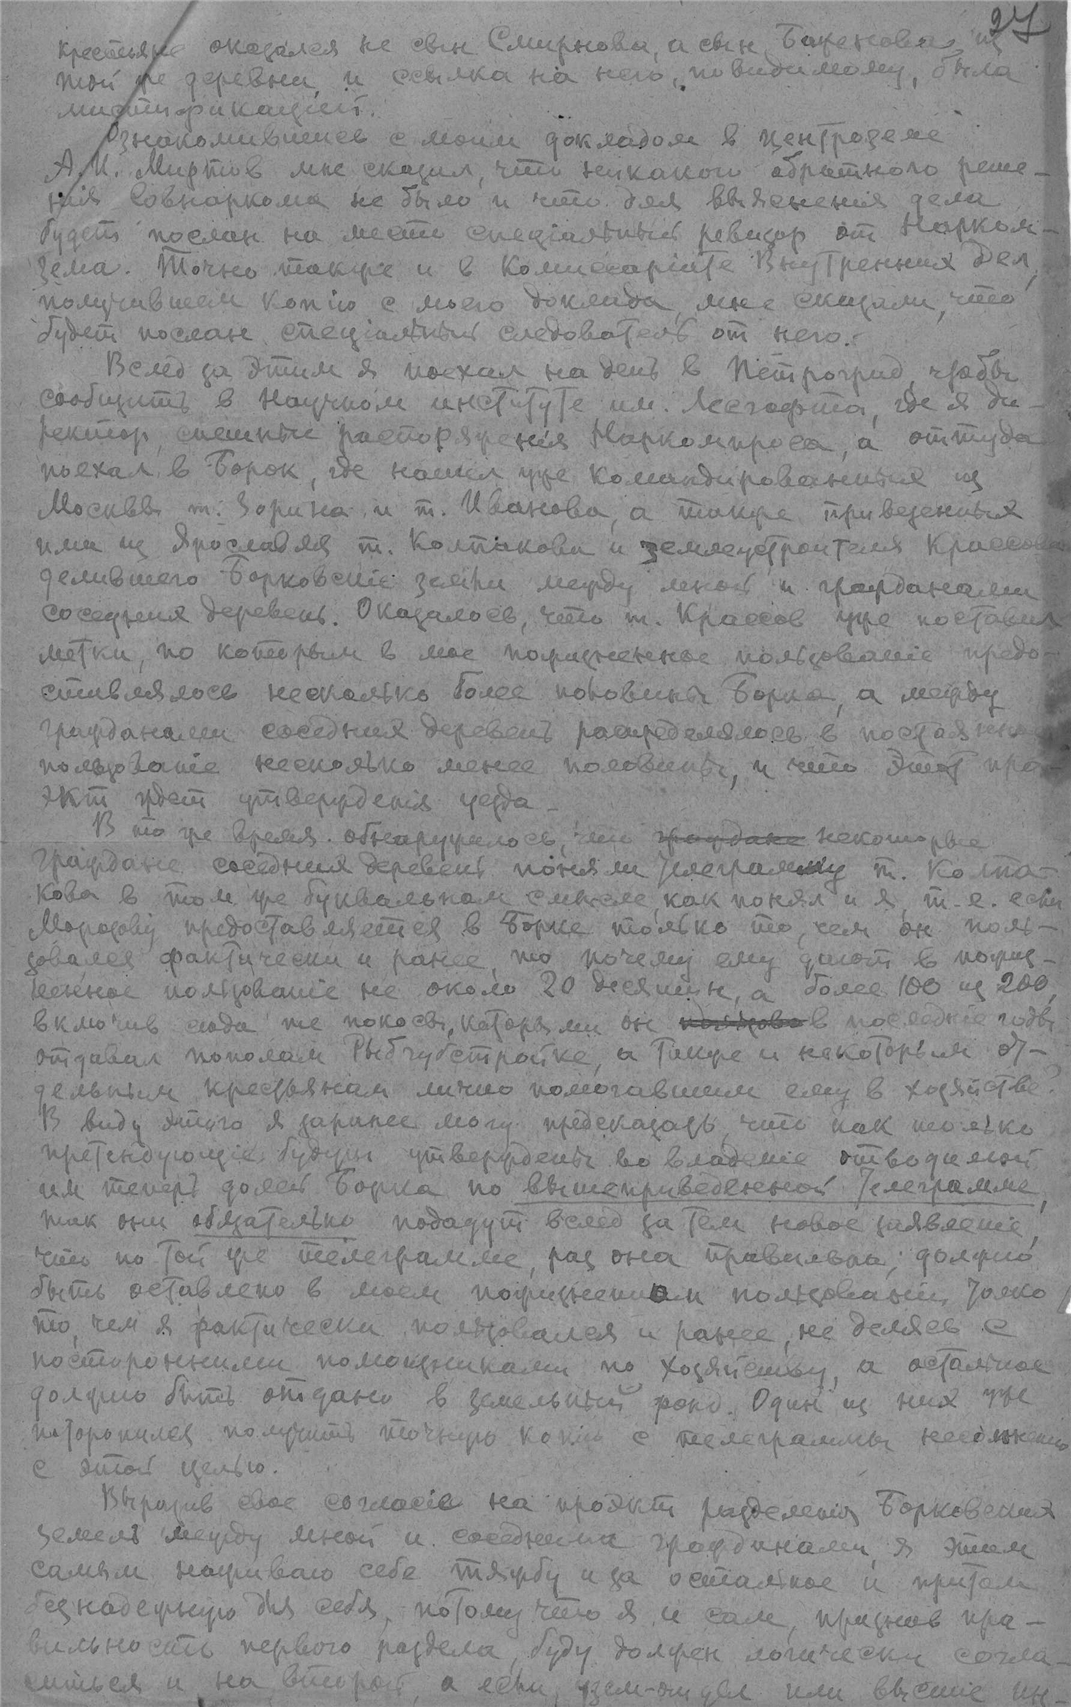 27
крестьяне оказался не сын Смирнова, а сын Баженова, из
той же деревни, и ссылка на него, повидимому, была
мистификацией.
Ознакомившись с моим докладом в Центроземе
А.И. Муртов мне сказал, что никакого обратного реше-
нія Совнаркома не было и что для выяснения дела
будет послан на место спеціальный ревизор от Нарком-
зема. Точно также и в Комиссаріате Внутренних Дел,
получившем копію с моего доклада, мне сказали, что
будет послан спеціальный следователь от него.
Вслед за этим я поехал на день в Петроград, чтобы
сообщить в Научном институте им. Лесгафта, где я ди-
ректор, спешные распоряженія Наркомпроса, а оттуда
поехал в Борок, где нашел уже командированных из
Москвы т. Зорина и т. Иванова, а также привезенных
ими из Ярославля т. Колпакова и землеустроителя Крассова
делившего Борковскіе земли между мной и гражданами
соседних деревень. Оказалось, что т. Крассов уже поставил
метки, по которым в мое пожизненное пользованіе предо-
ставлялось несколько более половины Борка, а между
гражданами соседних деревень распределялось в постоянное
пользованіе несколько менее половины, и что этот про-
экт ждет утвержденія уезда.
В то же время обнаружилось, что граждане некоторые
граждане соседних деревень поняли телеграмму т. Колпа-
кова в том же буквальном смысле, как понял и я, т.е. если
Морозову предоставляется в Борке только то, чем он поль-
зовался фактически и ранее, то почему ему дают в пожиз-
ненное пользованіе не около 20 десятин, а более 100 из 200,
включив сюда же покосы, которыми он пользова в последніе годы
отдавал пополам Рыбчубстройке, а также и некоторым от-
дельным крестьянам лично помогавшим ему в хозяйстве?
В виду этого я заранее могу предсказать, что как только
претендующіе будут утверждены во владеніе отводимой
им теперь долей Борка по вышеприведенной телеграмме,
так они обязательно подадут вслед за тем новое заявленіе,
что по той же телеграмме, раз она правильна, должно
быть оставлено в моем пожизненном пользованіи только
то, чем я фактически пользовался и ранее, не делясь с
посторонними помощниками по хозяйству, а остальное
должно быть отдано в земельный фонд. Один из них уже
поторопился получить точную копію с телеграммы несомненно
с этой целью.
Выразив свое согласіе на проэкт разделенія Борковских
земель между мной и соседними гражданами, я этим
самым наживаю себе тяжбу и за остальное и притом
безнадежную для себя, потому что я и сам, признав пра-
вильность первого раздела, буду должен логически согла-
ситься и на второй, а если, зем-отдел или высшіе ин-